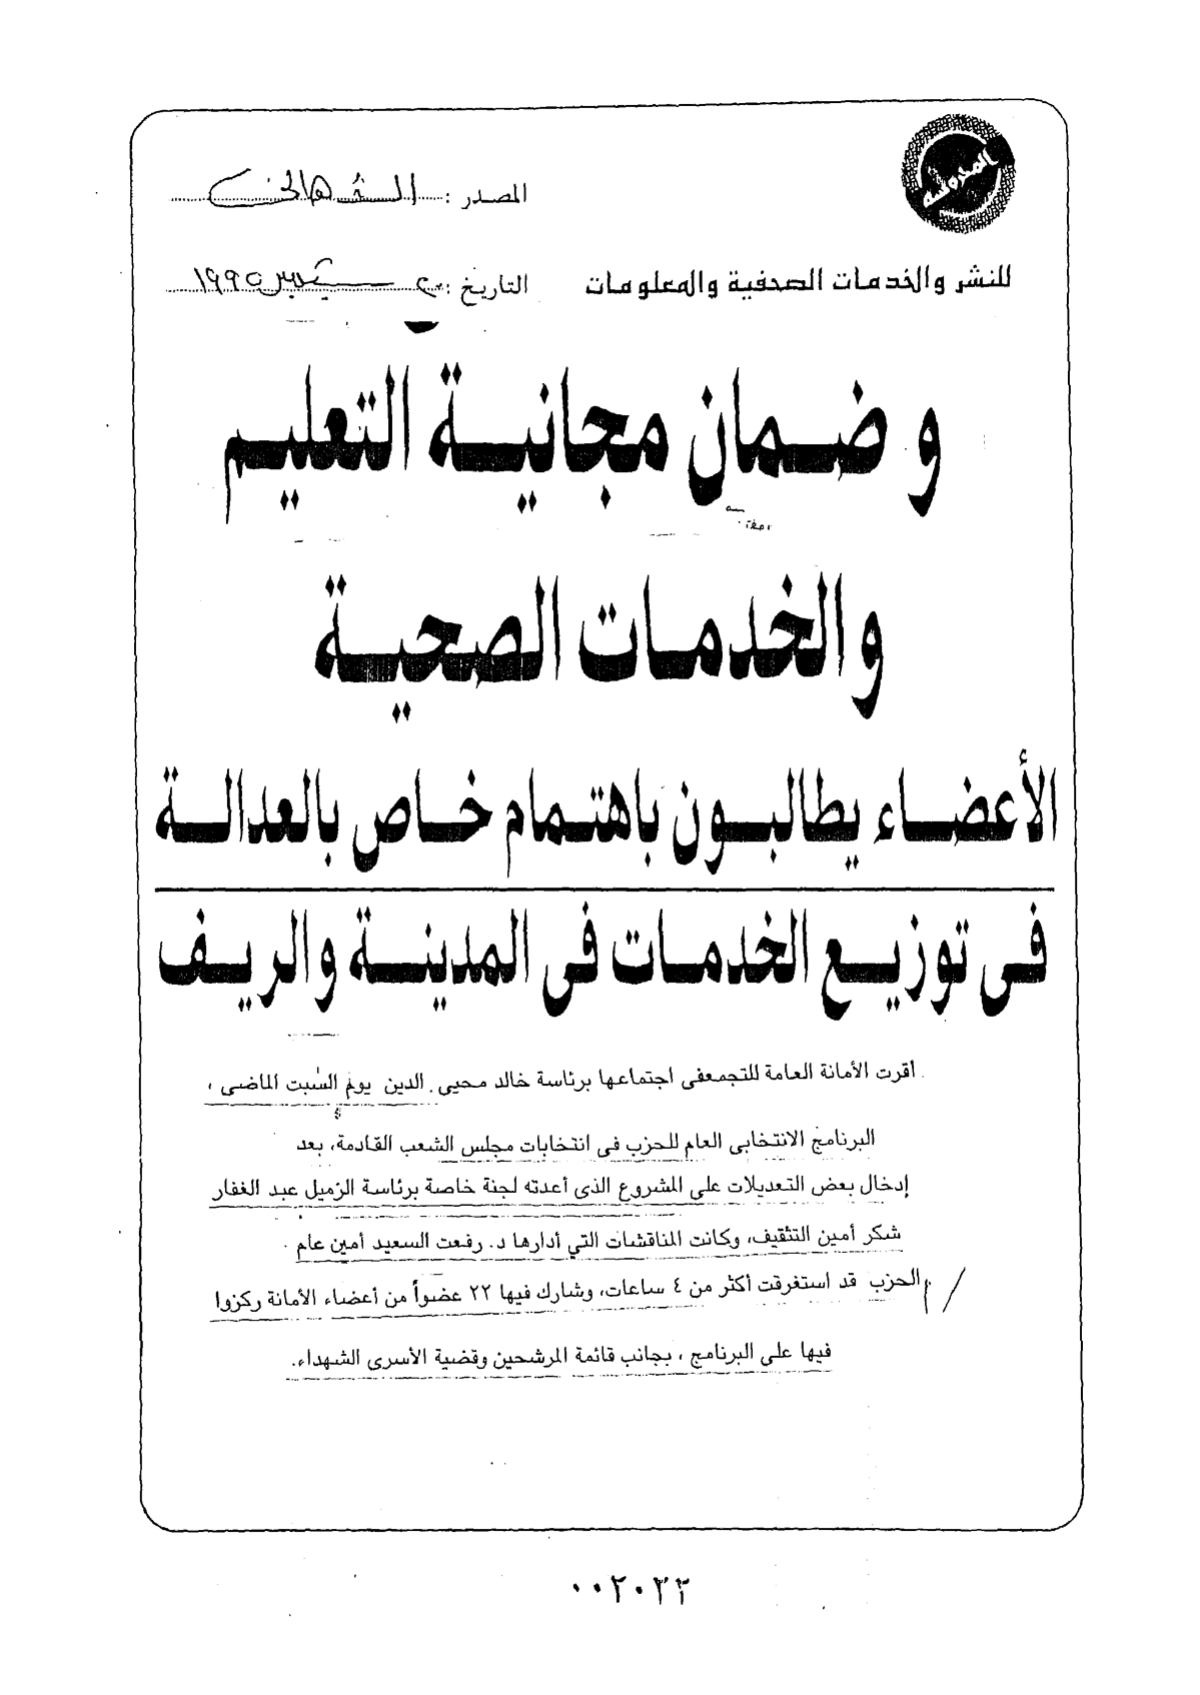 المدونة
المصدر :
للنشر والخدمات الصحفية والمعلومات
التاريخ : ٢٠ سبتمبر ١٩٩٥
وضمان مجانية التعليم
والخدمات الصحية
الأعضاء يطالبون باهتمام خاص بالعدالة
فى توزيع الخدمات فى المدينة والريف
أقرت الأمانة العامة للتجمعفى اجتماعها برئاسة خالد محيى الدين يوم السبت الماضى ،
البرنامج الانتخابى العام للحزب فى انتخابات مجلس الشعب القادمة، بعد
إدخال بعض التعديلات على المشروع الذى أعدته لجنة خاصة برئاسة الزميل عبد الغفار
شكر أمين التثقيف، وكانت المناقشات التي أدارها د. رفعت السعيد أمين عام
الحزب قد استغرقت أكثر من ٤ ساعات، وشارك فيها ٢٢ عضواً من أعضاء الأمانة ركزوا
فيها على البرنامج ، بجانب قائمة المرشحين وقضية الأسرى الشهداء.
٠٠٢٠٢٢